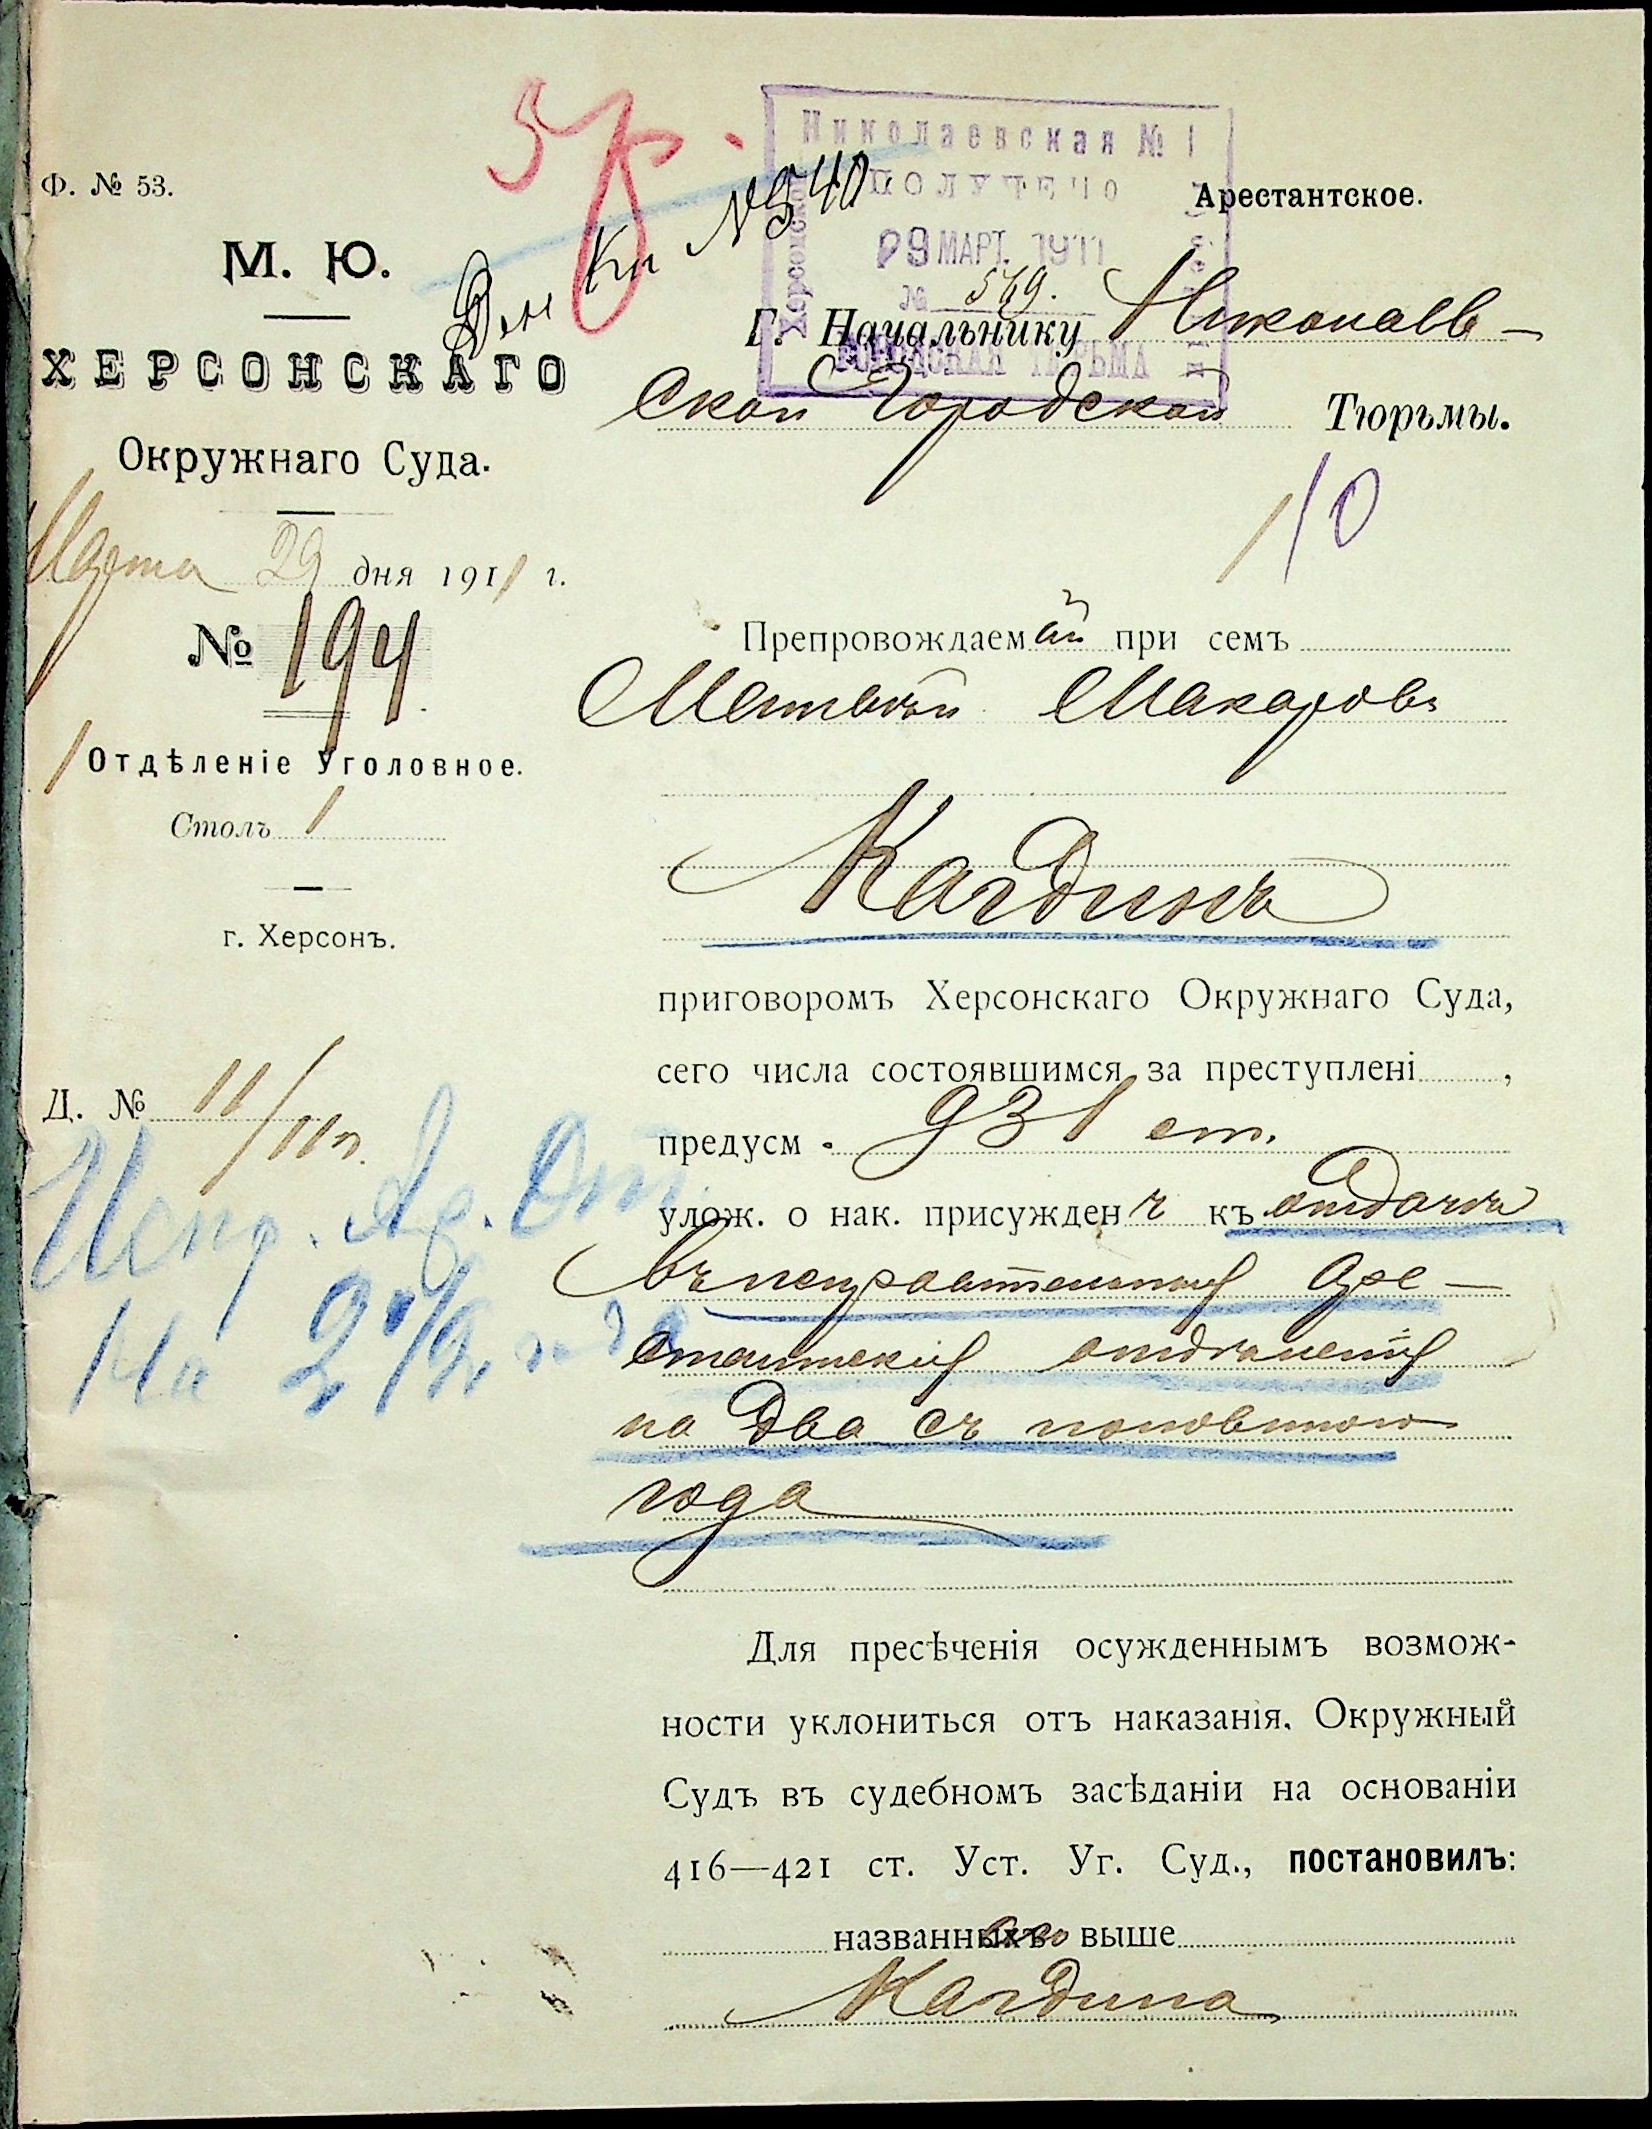 Ф. № 53.
М. Ю.
ХЕРСОНСКАГО
Окружнаго Суда.
Марта 29 дня 1911 г.
№ 194
1 Отдѣленіе Уголовное.
Столъ 1
г. Херсонъ.
Д. № 11/11 г.
Испр. Ар. От.
На 2 1/2 года
Кн № 540
Николаевская № 1
ПОЛУЧЕНО
29 МАРТ. 1911
№ 569.
ГОРОДСКАЯ ТЮРЬМА
Херсонской
Арестантское.
Г. Начальнику Николаев-
ской Городской Тюрьмы.
110
Препровождаемый при семъ
Матвѣй Макаровъ
Кагдинъ
приговоромъ Херсонскаго Окружнаго Суда,
сего числа состоявшимся за преступлені ,
предусм. 931 ст.
улож. о нак. присужденъ къ отдачѣ
въ исправительныя аре-
стантскія отдѣленія
на два съ половиною
года
Для пресѣченія осужденнымъ возмож-
ности уклониться отъ наказанія, Окружный
Судъ въ судебномъ засѣданіи на основаніи
416—421 ст. Уст. Уг. Суд., постановилъ:
названнаго выше
Кагдина